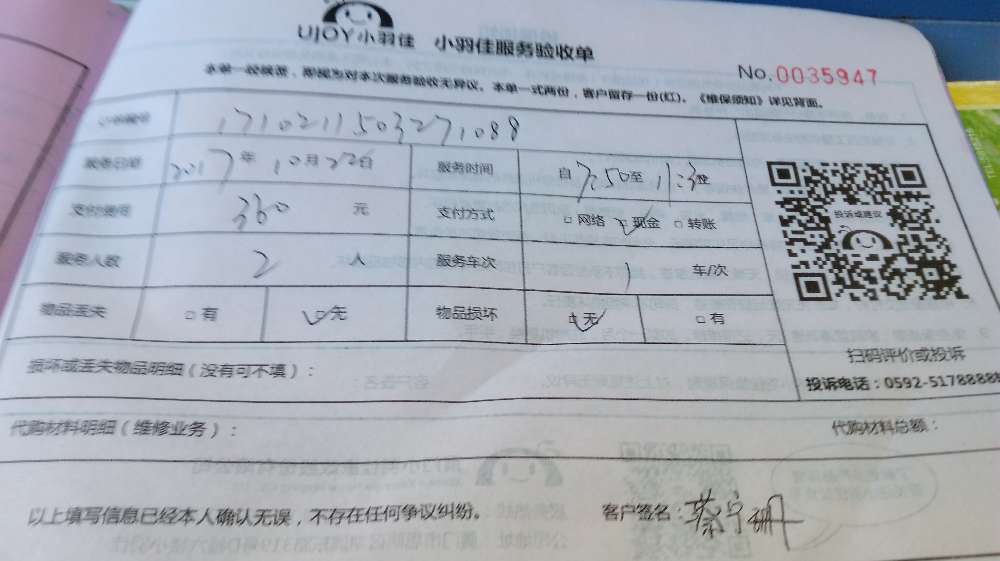 UJOY小羽佳 小羽佳服务验收单
No.0035947
本单一经签署，即视为对本次服务验收无异议。本单一式两份，客户留存一份(红)。《维保须知》详见背面。
订单编号 1710211503271088
服务日期 2017年10月22日 服务时间 自7:50至11:30
支付费用 360元 支付方式 □网络 □现金 □转账
服务人数 2人 服务车次 1车/次
物品丢失 □有 □无 物品损坏 □无 □有
投诉或建议
扫码评价或投诉
损坏或丢失物品明细（没有可不填）：
投诉电话：0592-5178888
代购材料明细（维修业务）： 代购材料总额：
以上填写信息已经本人确认无误，不存在任何争议纠纷。 客户签名：蔡宇珊